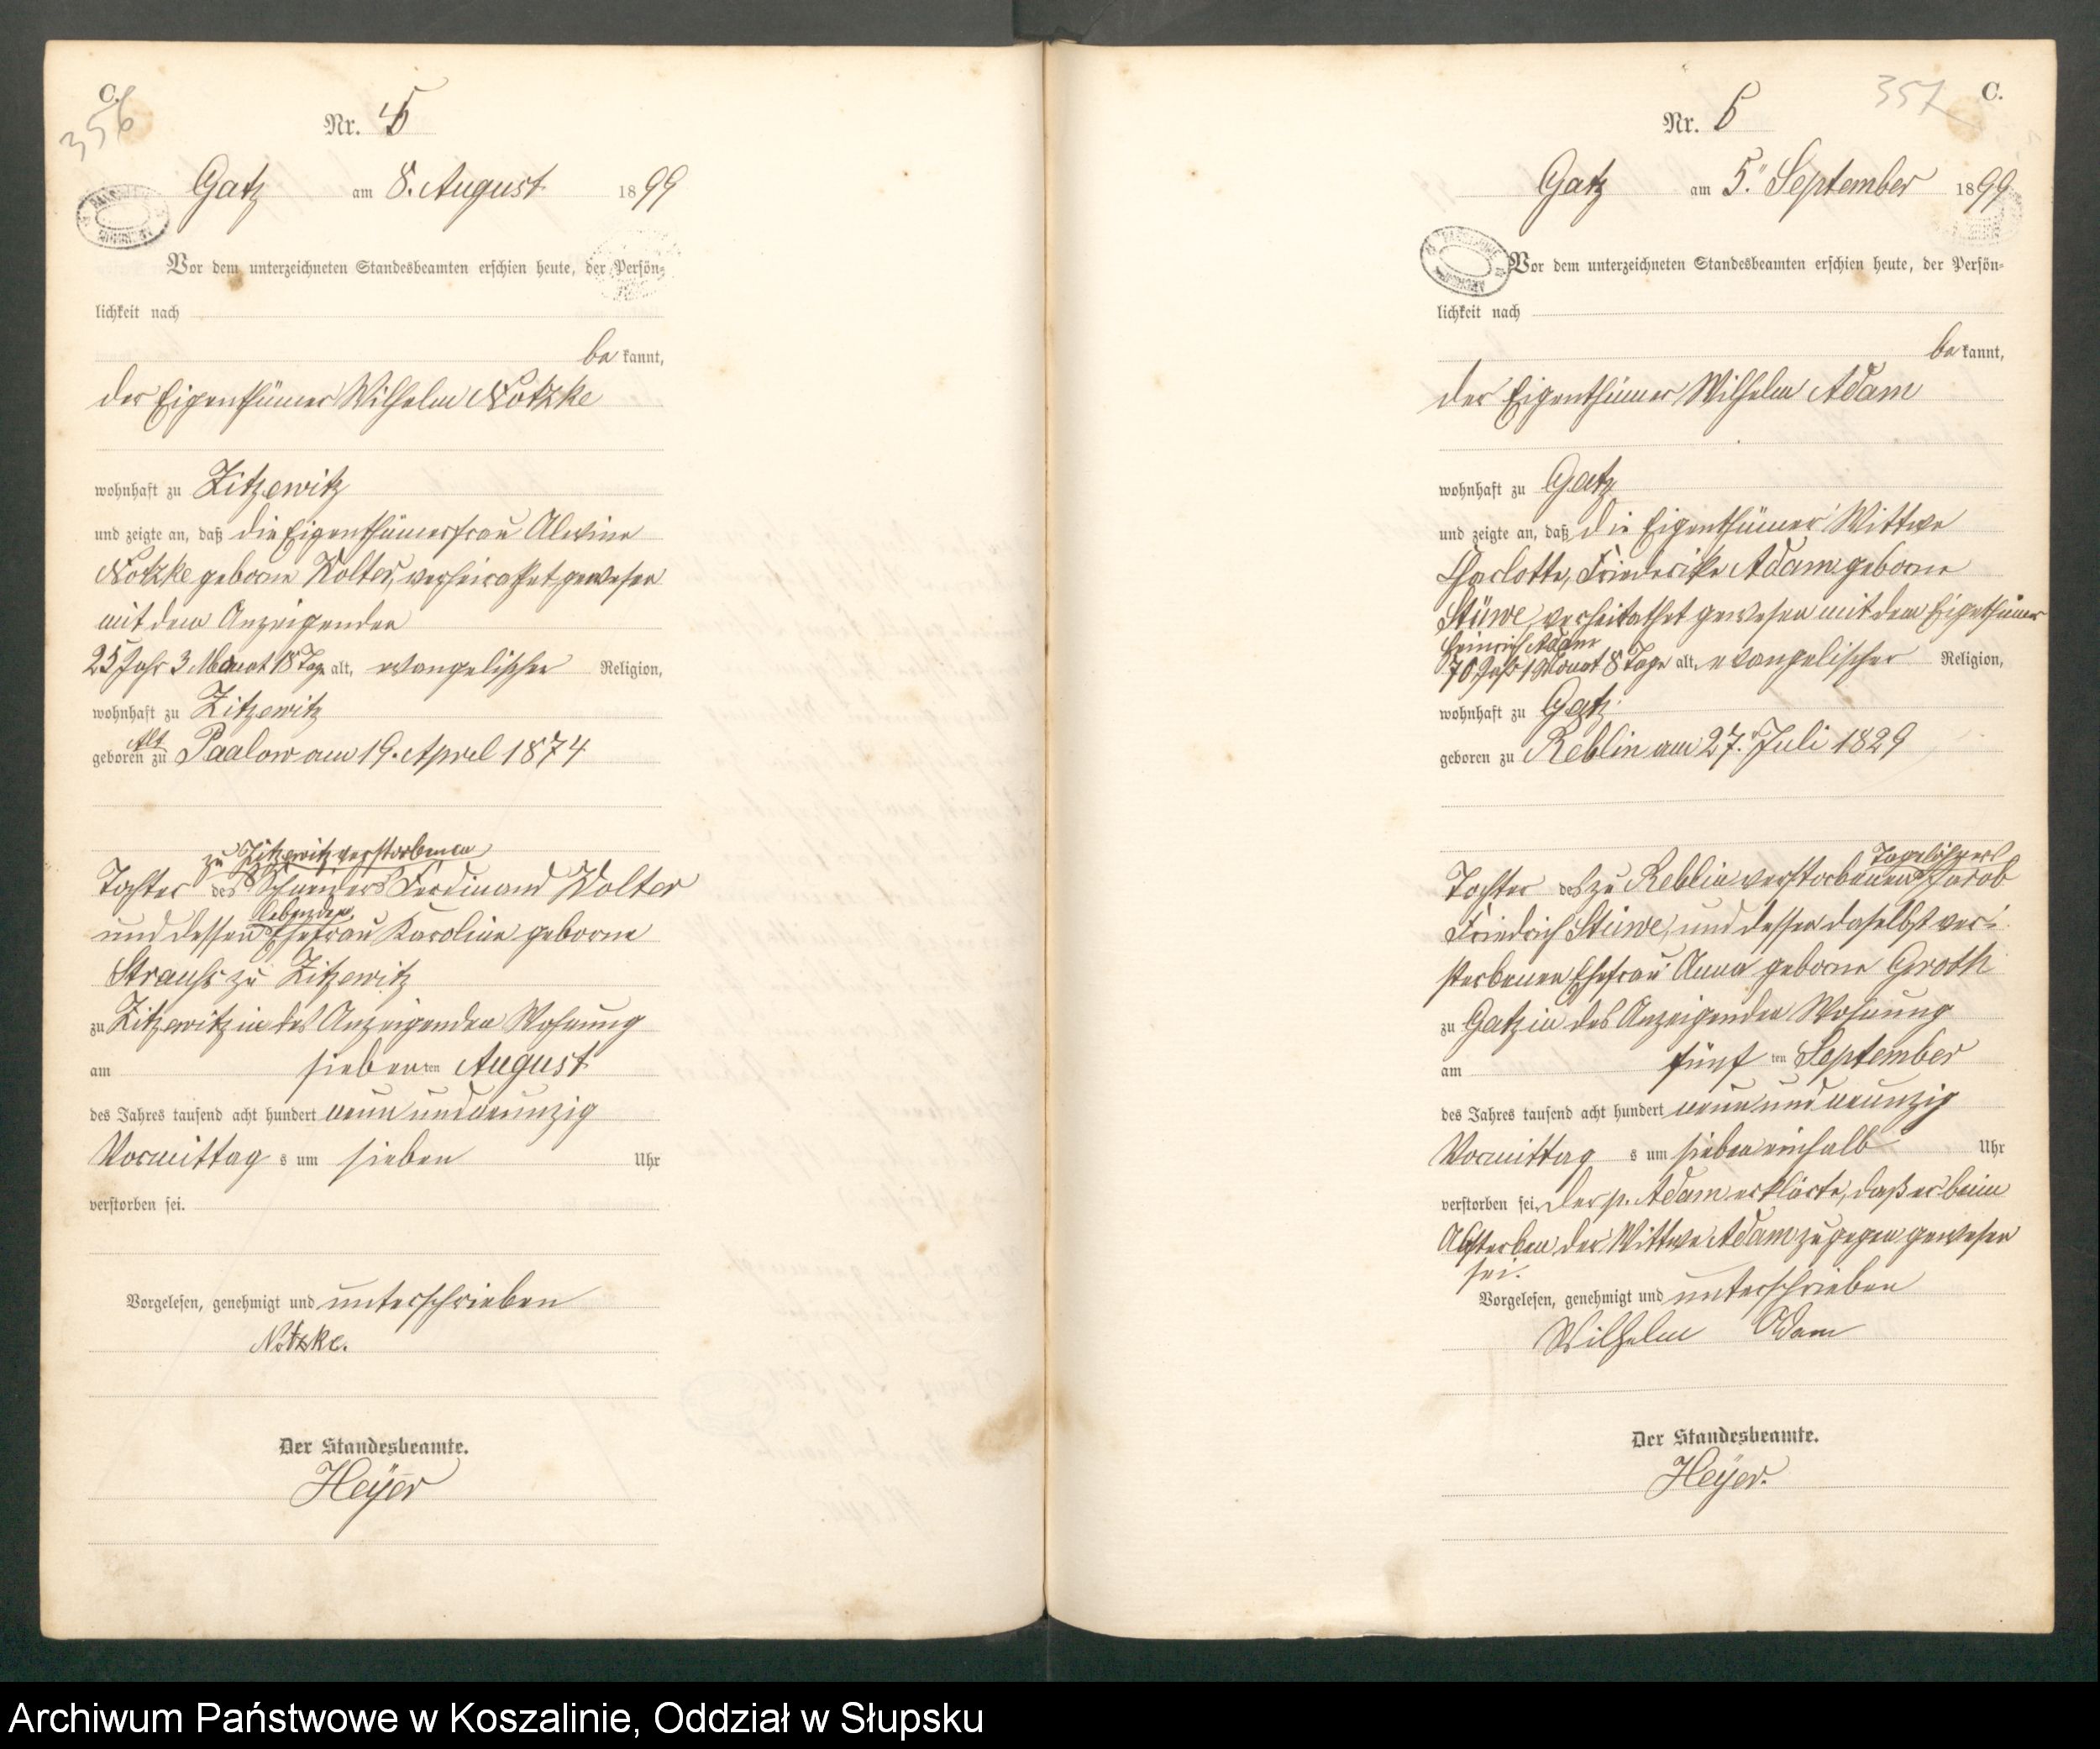 C.
356
Nr. 5
Gatz am 8. August 1899
Vor dem unterzeichneten Standesbeamten erschien heute, der Persön-
lichkeit nach
be kannt,
der Eigenthümer Wilhelm Notzke
wohnhaft zu Zitzewitz
und zeigte an, daß die Eigenthümerfrau Alwine
Notzke geborne Wolter, verheirathet gewesen
mit dem Anzeigenden
25 Jahr 3 Monat 18 Tage alt, evangelischer Religion,
wohnhaft zu Zitzewitz
Alt
geboren zu Paalow am 19. April 1874
zu Zitzewitz verstorbenen
Tochter des Schneiders Ferdinand Wolter
lebenden
und dessen Ehefrau Karoline geborne
Strauß zu Zitzewitz
zu Zitzewitz in des Anzeigenden Wohnung
am siebenten August
des Jahres tausend acht hundert neun und neunzig
Vormittag s um sieben Uhr
verstorben sei.
Vorgelesen, genehmigt und unterschrieben
Notzke.
Der Standesbeamte.
Heyer
357 C.
Nr. 6
Gatz am 5. September 1899
Vor dem unterzeichneten Standesbeamten erschien heute, der Persön-
lichkeit nach
be kannt,
der Eigenthümer Wilhelm Adam
wohnhaft zu Gatz
und zeigte an, daß die Eigenthümer Wittwe
Charlotte, Friederike Adam geborne
Stüwe, verheirathet gewesen mit dem Eigenthümer
Heinrich Adam
70 Jahr 1 Monat 8 Tage alt, evangelischer Religion,
wohnhaft zu Gatz
geboren zu Reblin am 27. Juli 1829
Tagelöhners
Tochter des zu Reblin verstorbenen Jakob
Friedrich Stüwe, und dessen daselbst ver-
storbenen Ehefrau Anna geborne Groth
zu Gatz in des Anzeigenden Wohnung
am fünf ten September
des Jahres tausend acht hundert neun und neunzig
Vormittag s um sieben einhalb Uhr
verstorben sei. Der p. Adam erklärte, daß er beim
Absterben der Wittwe Adam zugegen gewesen
sei.
Vorgelesen, genehmigt und unterschrieben
Wilhelm Adam
Der Standesbeamte.
Heyer.
Archiwum Państwowe w Koszalinie, Oddział w Słupsku